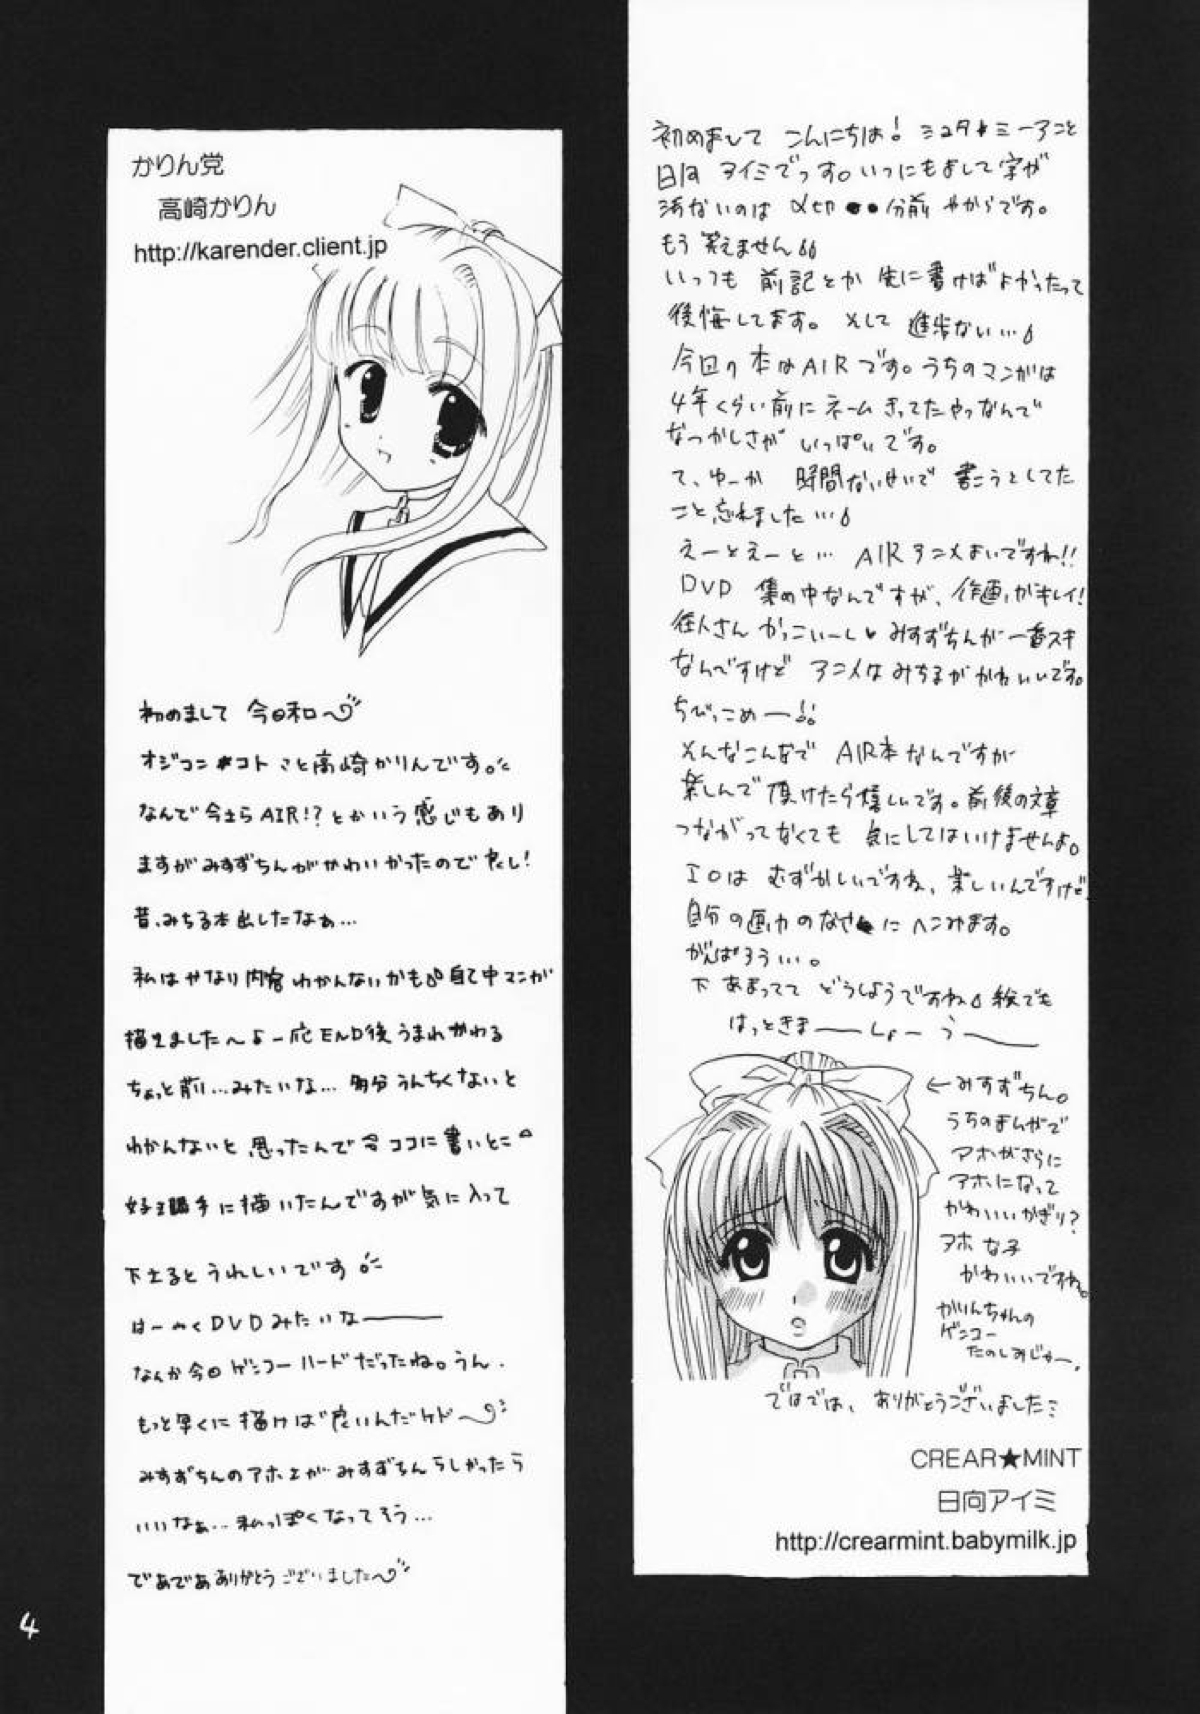 初めまして こんにちは! ミュタ★ミーアこと
日向 アイミでっす。いつにもまして字が
汚ないのは 〆切 ●●分前 やからです。
もう 笑えません
いっつも 前記とか 先に書けばよかったって
後悔してます。そして 進歩ない…
今回の本はAIRです。うちのマンガは
4年くらい前にネームきってたやつなんで
なつかしさが いっぱいです。
て、ゆーか 時間ないせいで 書こうとしてた
こと忘れました…
えーとえーと… AIRアニメよいですね!!
DVD 集め中なんですが、作画がキレイ!
往人さん かっこいーし♥ みすずちんが一番スキ
なんですけど アニメはみちるがかわいいです。
ちびっこめー!!
そんなこんなで AIR本なんですが
楽しんで頂けたら嬉しいです。前後の文章
つながってなくても 気にしてはいけませんよ。
エロは むずかしいですね、楽しいんですけど
自分の画力のなさに ヘこみます。
がんばろうぃぃ。
下 あまってて どうしようですね 絵でも
はっときまーしょーうー
←みすずちん。
うちのまんがで
アホがさらに
アホになって
かわいいかぎり?
アホな子
かわいいですね。
かりんちゃんの
ゲンコー
たのしみじゃー。
ではでは、ありがとうございました
CREAR★MINT
日向アイミ
http://crearmint.babymilk.jp
かりん党
高崎かりん
http://karender.client.jp
初めまして 今日和〜
オジコン コト こと高崎かりんです。
なんで今さらAIR!?とかいう感じもあり
ますがみすずちんがかわいかったので良し!
昔、みちる本出したなぁ…
私はやなり内容わかんないかも 自分 マンガ
描きました〜よ一応END後うまれかわる
ちょっと前…みたいな…多分うんちくないと
わかんないと思ったんで今ココに書いとこ
好き勝手に描いたんですが気に入って
下さるとうれしいです
はーやくDVDみたいなー
なんか今回ゲンコーハードだったね。うん。
もっと早くに描けば良いんだケド〜
みすずちんのアホさがみすずちんらしかったら
いいなぁ…私っぽくなってそう…
であであありがとうございました〜
4